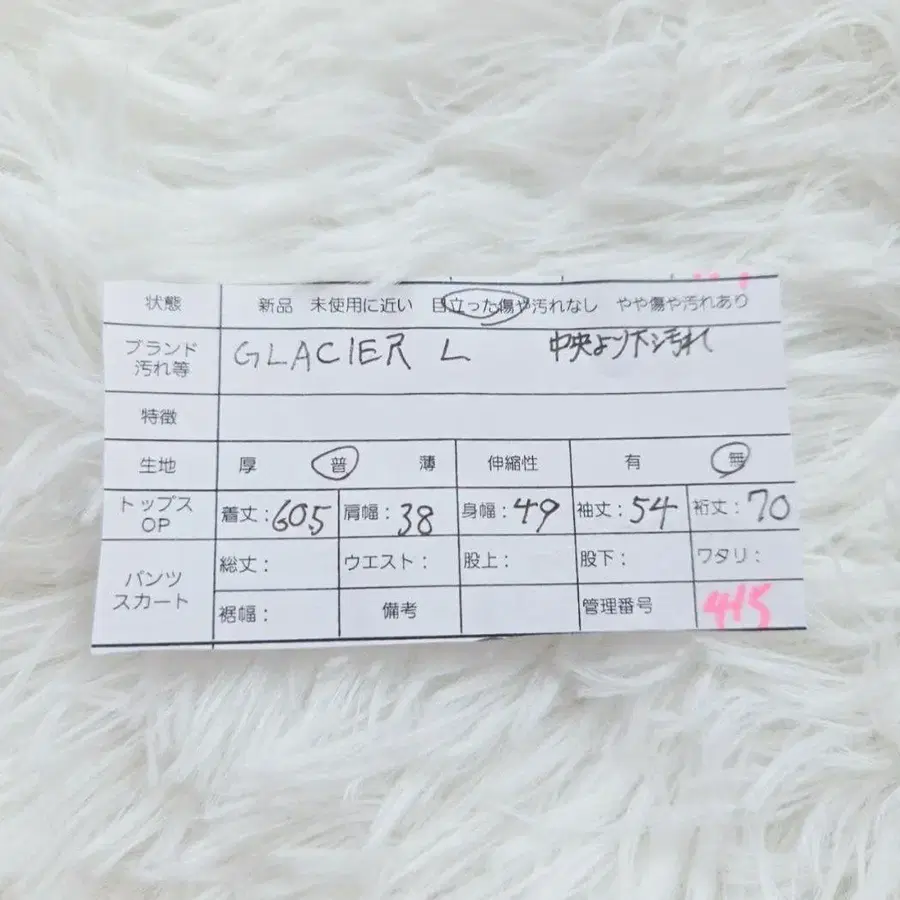 状態 新品 未使用に近い 目立った傷や汚れなし やや傷や汚れあり
ブランド 汚れ等 GLACIER L 中央より下シ汚れ
特徴
生地 厚 普 薄 伸縮性 有 無
トップス OP 着丈：60.5 肩幅：38 身幅：49 袖丈：54 裄丈：70
パンツ スカート 総丈： ウエスト： 股上： 股下： ワタリ：
裾幅： 備考 管理番号 415